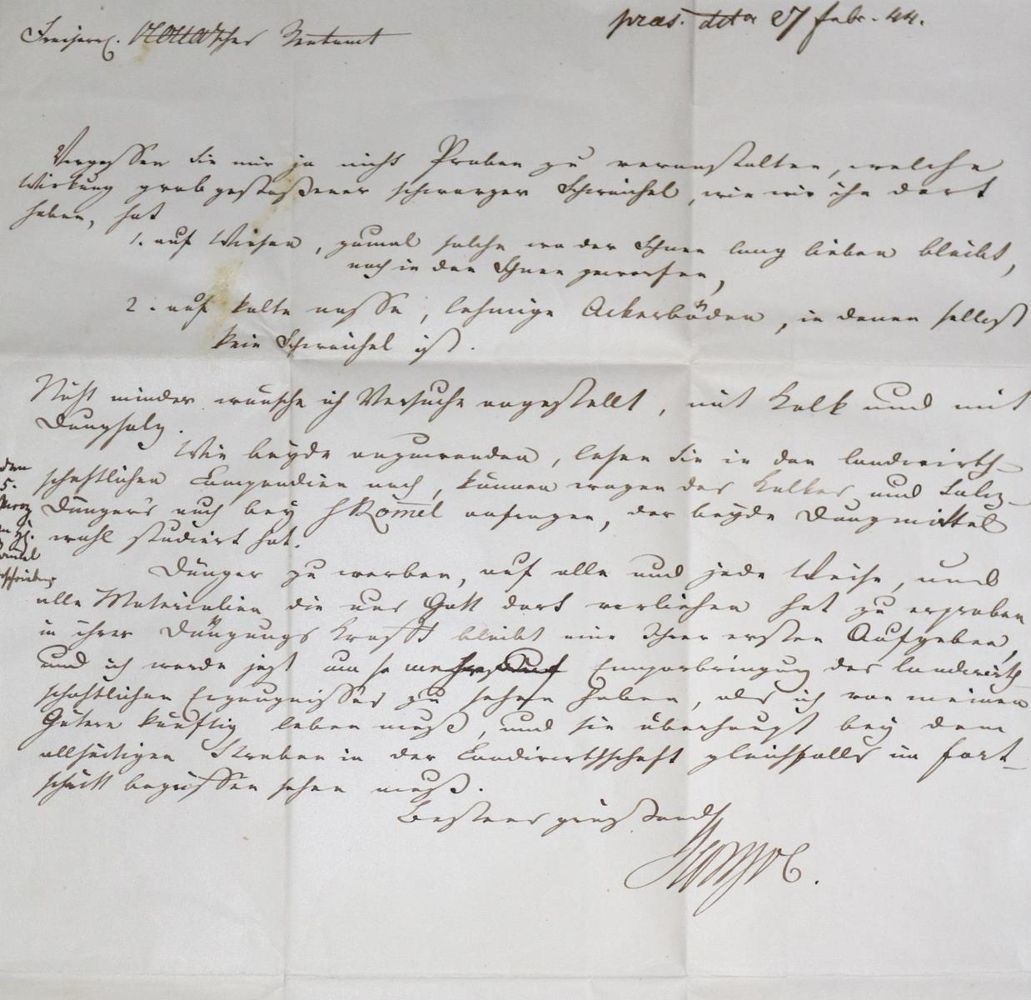 Freiherrl. Rentamt
præs. 27 Febr. 44.
Vergessen Sie mir ja nicht Proben zu veranstalten, welche
Wirkung grob gestoßener schwarzer, wie wir ihn dort
haben, hat
1. auf Wiesen, zumal solche wo der Schnee lang liegen bleibt,
noch in den Schnee geworfen,
2. auf kalte nasse, lehmige Ackerböden, in denen selbst
kein ist.
Nicht minder wünsche ich Versuche angestellt, mit Kalk und mit
Dungsalz.
Wie beyde anzuwenden, lesen Sie in den landwirth-
schaftlichen Compendien nach, können wegen des Kalkes und Salz-
Düngers auch bey H Römel anfragen, der beyde Dungmittel
wohl studiert hat.
Dünger zu werben, auf alle und jede Weise, und
alle Materialien die uns Gott dort verliehen hat zu erproben
in ihrer Düngungs Kraft bleibt eine Ihrer ersten Aufgaben,
und ich werde jezt um so mehr Emporbringung des landwirth-
schaftlichen Erzeugnisses zu sehen haben, als ich von meinen
Gütern künftig leben muß, und sie überhaupt bey dem
allseitigen Streben in der Landwirthschaft gleichfalls im Fort-
schritt begriffen sehen muß.
Bestens grüßend